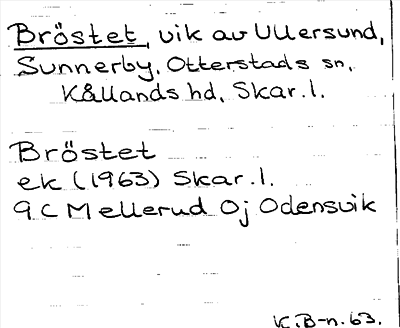 Bröstet, vik av Ullersund,
Sunnerby, Otterstads sn,
Kållands hd, Skar.l.
Bröstet
ek (1963) Skar.l.
9C Mellerud Oj Odensvik
K.B-n.63.